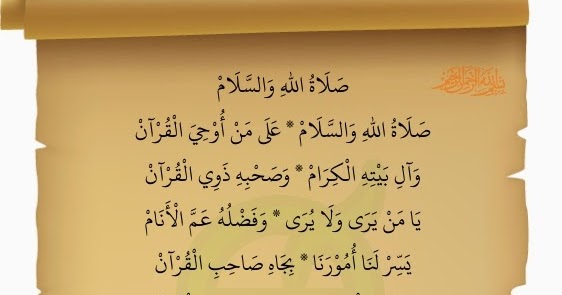 صَلَاةُ اللهِ وَالسَّلَامْ
صَلَاةُ اللهِ وَالسَّلَامْ * عَلَى مَنْ أُوْحِيَ الْقُرْآنْ
وَآلِ بَيْتِهِ الْكِرَامْ * وَصَحْبِهِ ذَوِي الْقُرْآنْ
يَا مَنْ يَرَى وَلَا يُرَى * وَفَضْلُهُ عَمَّ الْأَنَامْ
يَسِّرْ لَنَا أُمُوْرَنَا * بِجَاهِ صَاحِبِ الْقُرْآنْ